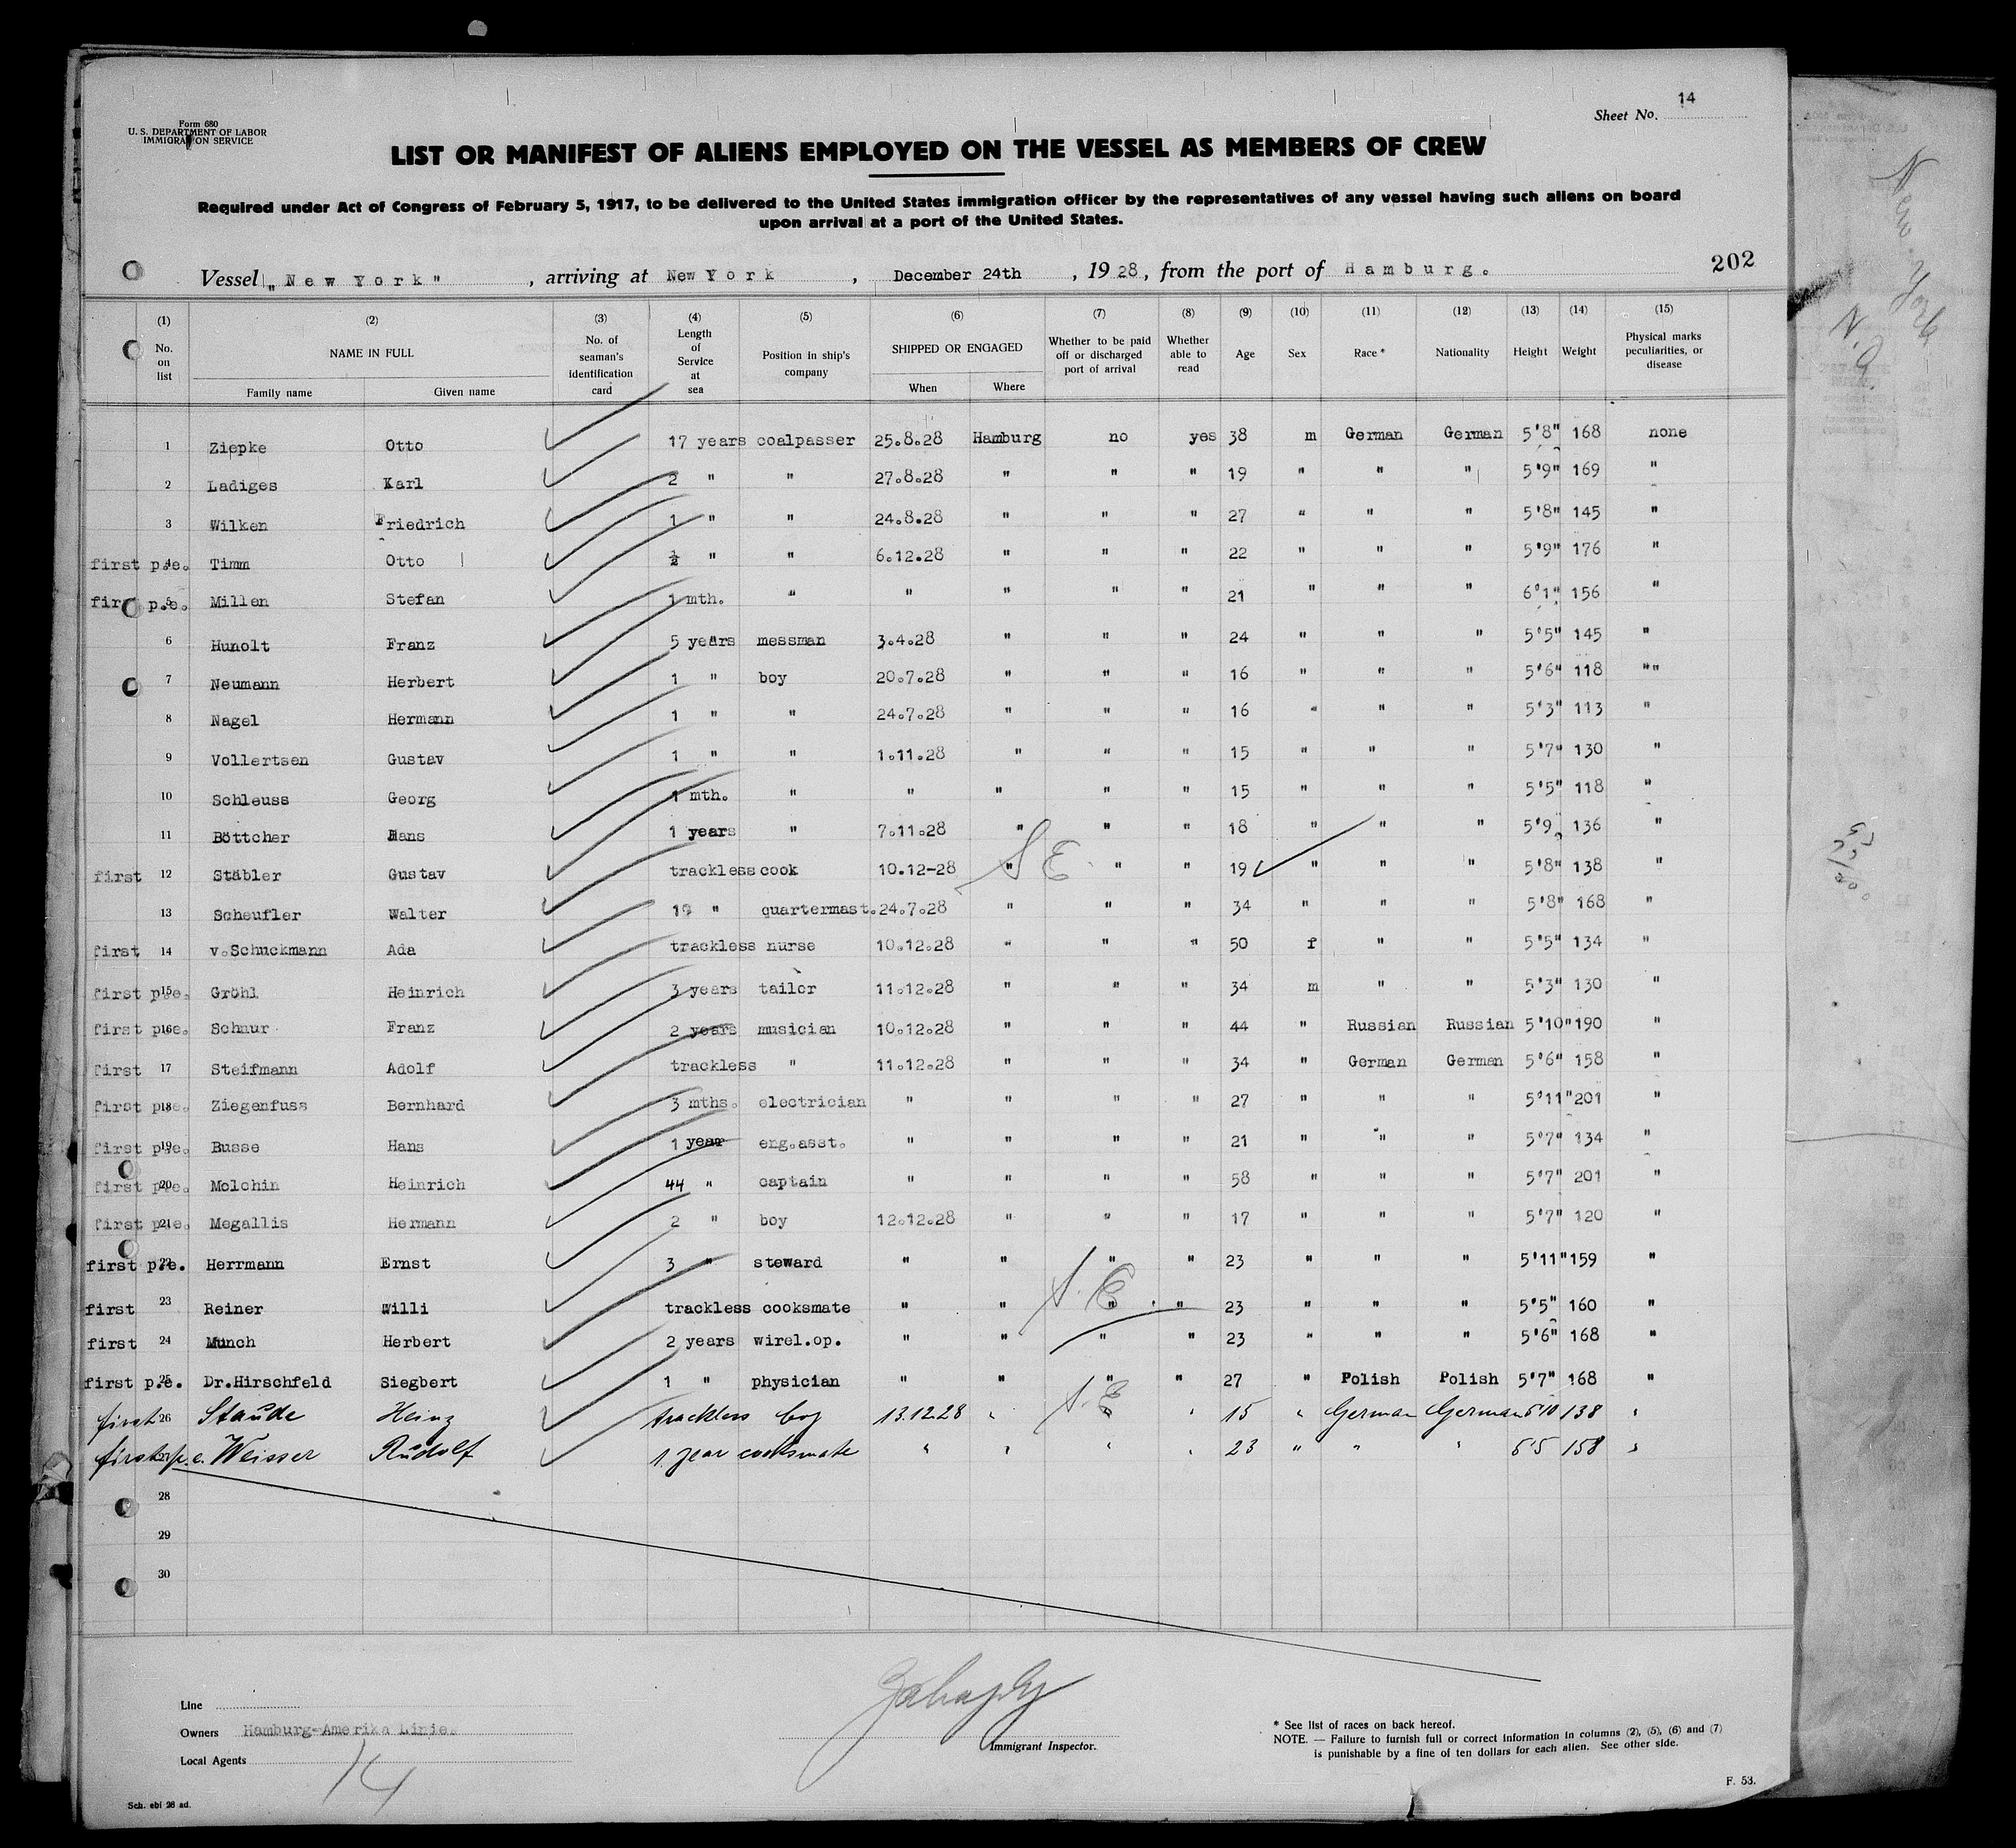 Form 680
U. S. DEPARTMENT OF LABOR
IMMIGRATION SERVICE
Sheet No. 14
LIST OR MANIFEST OF ALIENS EMPLOYED ON THE VESSEL AS MEMBERS OF CREW
Required under Act of Congress of February 5, 1917, to be delivered to the United States immigration officer by the representatives of any vessel having such aliens on board
upon arrival at a port of the United States.
Vessel „New York", arriving at New York, December 24th, 1928, from the port of Hamburg. 202
(1) (2) (3) (4) (5) (6) (7) (8) (9) (10) (11) (12) (13) (14) (15)
No. on list NAME IN FULL Family name Given name No. of seaman's identification card Length of Service at sea Position in ship's company SHIPPED OR ENGAGED When Where Whether to be paid off or discharged port of arrival Whether able to read Age Sex Race* Nationality Height Weight Physical marks peculiarities, or disease
1 Ziepke Otto 17 years coalpasser 25.8.28 Hamburg no yes 38 m German German 5'8" 168 none
2 Ladiges Karl 2 " " 27.8.28 " " " 19 " " " 5'9" 169 "
3 Wilken Friedrich 1 " " 24.8.28 " " " 27 " " " 5'8" 145 "
first p.e. 4 Timm Otto ½ " " 6.12.28 " " " 22 " " " 5'9" 176 "
first p.e. 5 Millen Stefan 1 mth. " " " " " 21 " " " 6'1" 156 "
6 Hunolt Franz 5 years messman 3.4.28 " " " 24 " " " 5'5" 145 "
7 Neumann Herbert 1 " boy 20.7.28 " " " 16 " " " 5'6" 118 ""
8 Nagel Hermann 1 " " 24.7.28 " " " 16 " " " 5'3" 113 "
9 Vollertsen Gustav 1 " " 1.11.28 " " " 15 " " " 5'7" 130 "
10 Schleuss Georg 1 mth. " " " " " 15 " " " 5'5" 118 "
11 Böttcher Hans 1 years " 7.11.28 " " " 18 " " " 5'9 136 "
first 12 Stäbler Gustav trackless cook 10.12-28 " S E " " 19 " " " 5'8" 138 "
13 Scheufler Walter 19 " quartermast. 24.7.28 " " " 34 " " " 5'8" 168 "
first 14 v.Schuckmann Ada trackless nurse 10.12.28 " " " 50 f " " 5'5" 134 "
first p.e. 15 Gröhl Heinrich 3 years tailor 11.12.28 " " " 34 m " " 5'3" 130 "
first p.e. 16 Schnur Franz 2 years musician 10.12.28 " " " 44 " Russian Russian 5'10" 190 "
first 17 Steifmann Adolf trackless " 11.12.28 " " " 34 " German German 5'6" 158 "
first p.e. 18 Ziegenfuss Bernhard 3 mths. electrician " " " " 27 " " " 5'11" 201 "
first p.e. 19 Busse Hans 1 year eng.asst. " " " " 21 " " " 5'7" 134 "
first p.e. 20 Molchin Heinrich 44 " captain " " " " 58 " " " 5'7" 201 "
first p.e. 21 Megallis Hermann 2 " boy 12.12.28 " " " 17 " " " 5'7" 120 "
first p.e. 22 Herrmann Ernst 3 " steward " " " " 23 " " " 5'11" 159 "
first 23 Reiner Willi trackless cooksmate " " S.E. " " 23 " " " 5'5" 160 "
first 24 Munch Herbert 2 years wirel.op. " " " " 23 " " " 5'6" 168 "
first p.e. 25 Dr.Hirschfeld Siegbert 1 " physician " " " " 27 " Polish Polish 5'7" 168 "
first 26 Staude Heinz trackless boy 13.12.28 " S.E " " 15 " German German 5'10 138 "
first p.e. 27 Weisser Rudolf 1 year cooksmate " " " " 23 " " " 5'5 158 "
28
29
30
Line
Owners Hamburg-Amerika Linie.
Local Agents
14
Immigrant Inspector.
* See list of races on back hereof.
NOTE. — Failure to furnish full or correct information in columns (2), (5), (6) and (7)
is punishable by a fine of ten dollars for each alien. See other side.
F. 53.
Sch. ebi 28 ad.
New York
N. Y.